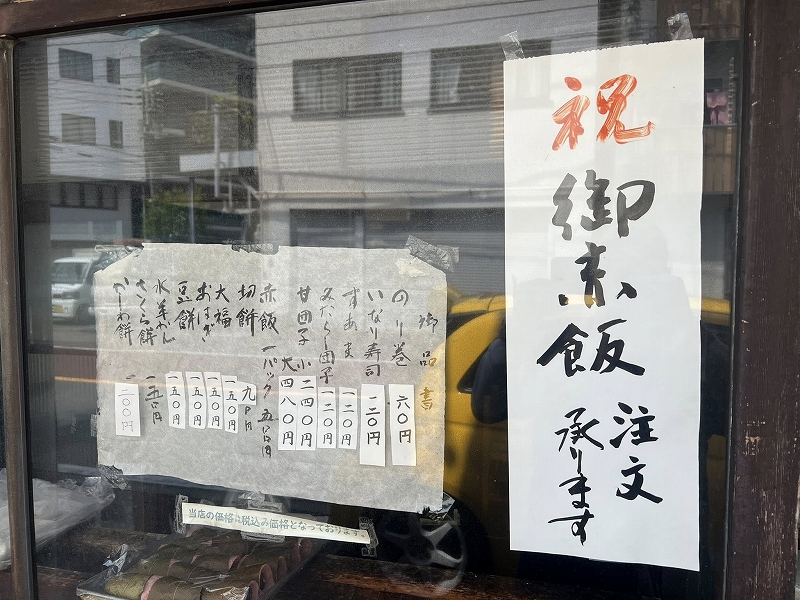 祝
御赤飯
注文
承ります
御品書
のり巻 六〇円
いなり寿司 一二〇円
すあま 一二〇円
みたらし団子 一二〇円
甘団子 小 二四〇円
大 四八〇円
赤飯 一パック 五〇〇円
切餅 九〇円
大福 一五〇円
おはぎ 一五〇円
豆餅 一五〇円
水羊かん 一五〇円
さくら餅
かしわ餅 二〇〇円
当店の価格は税込み価格となっております。